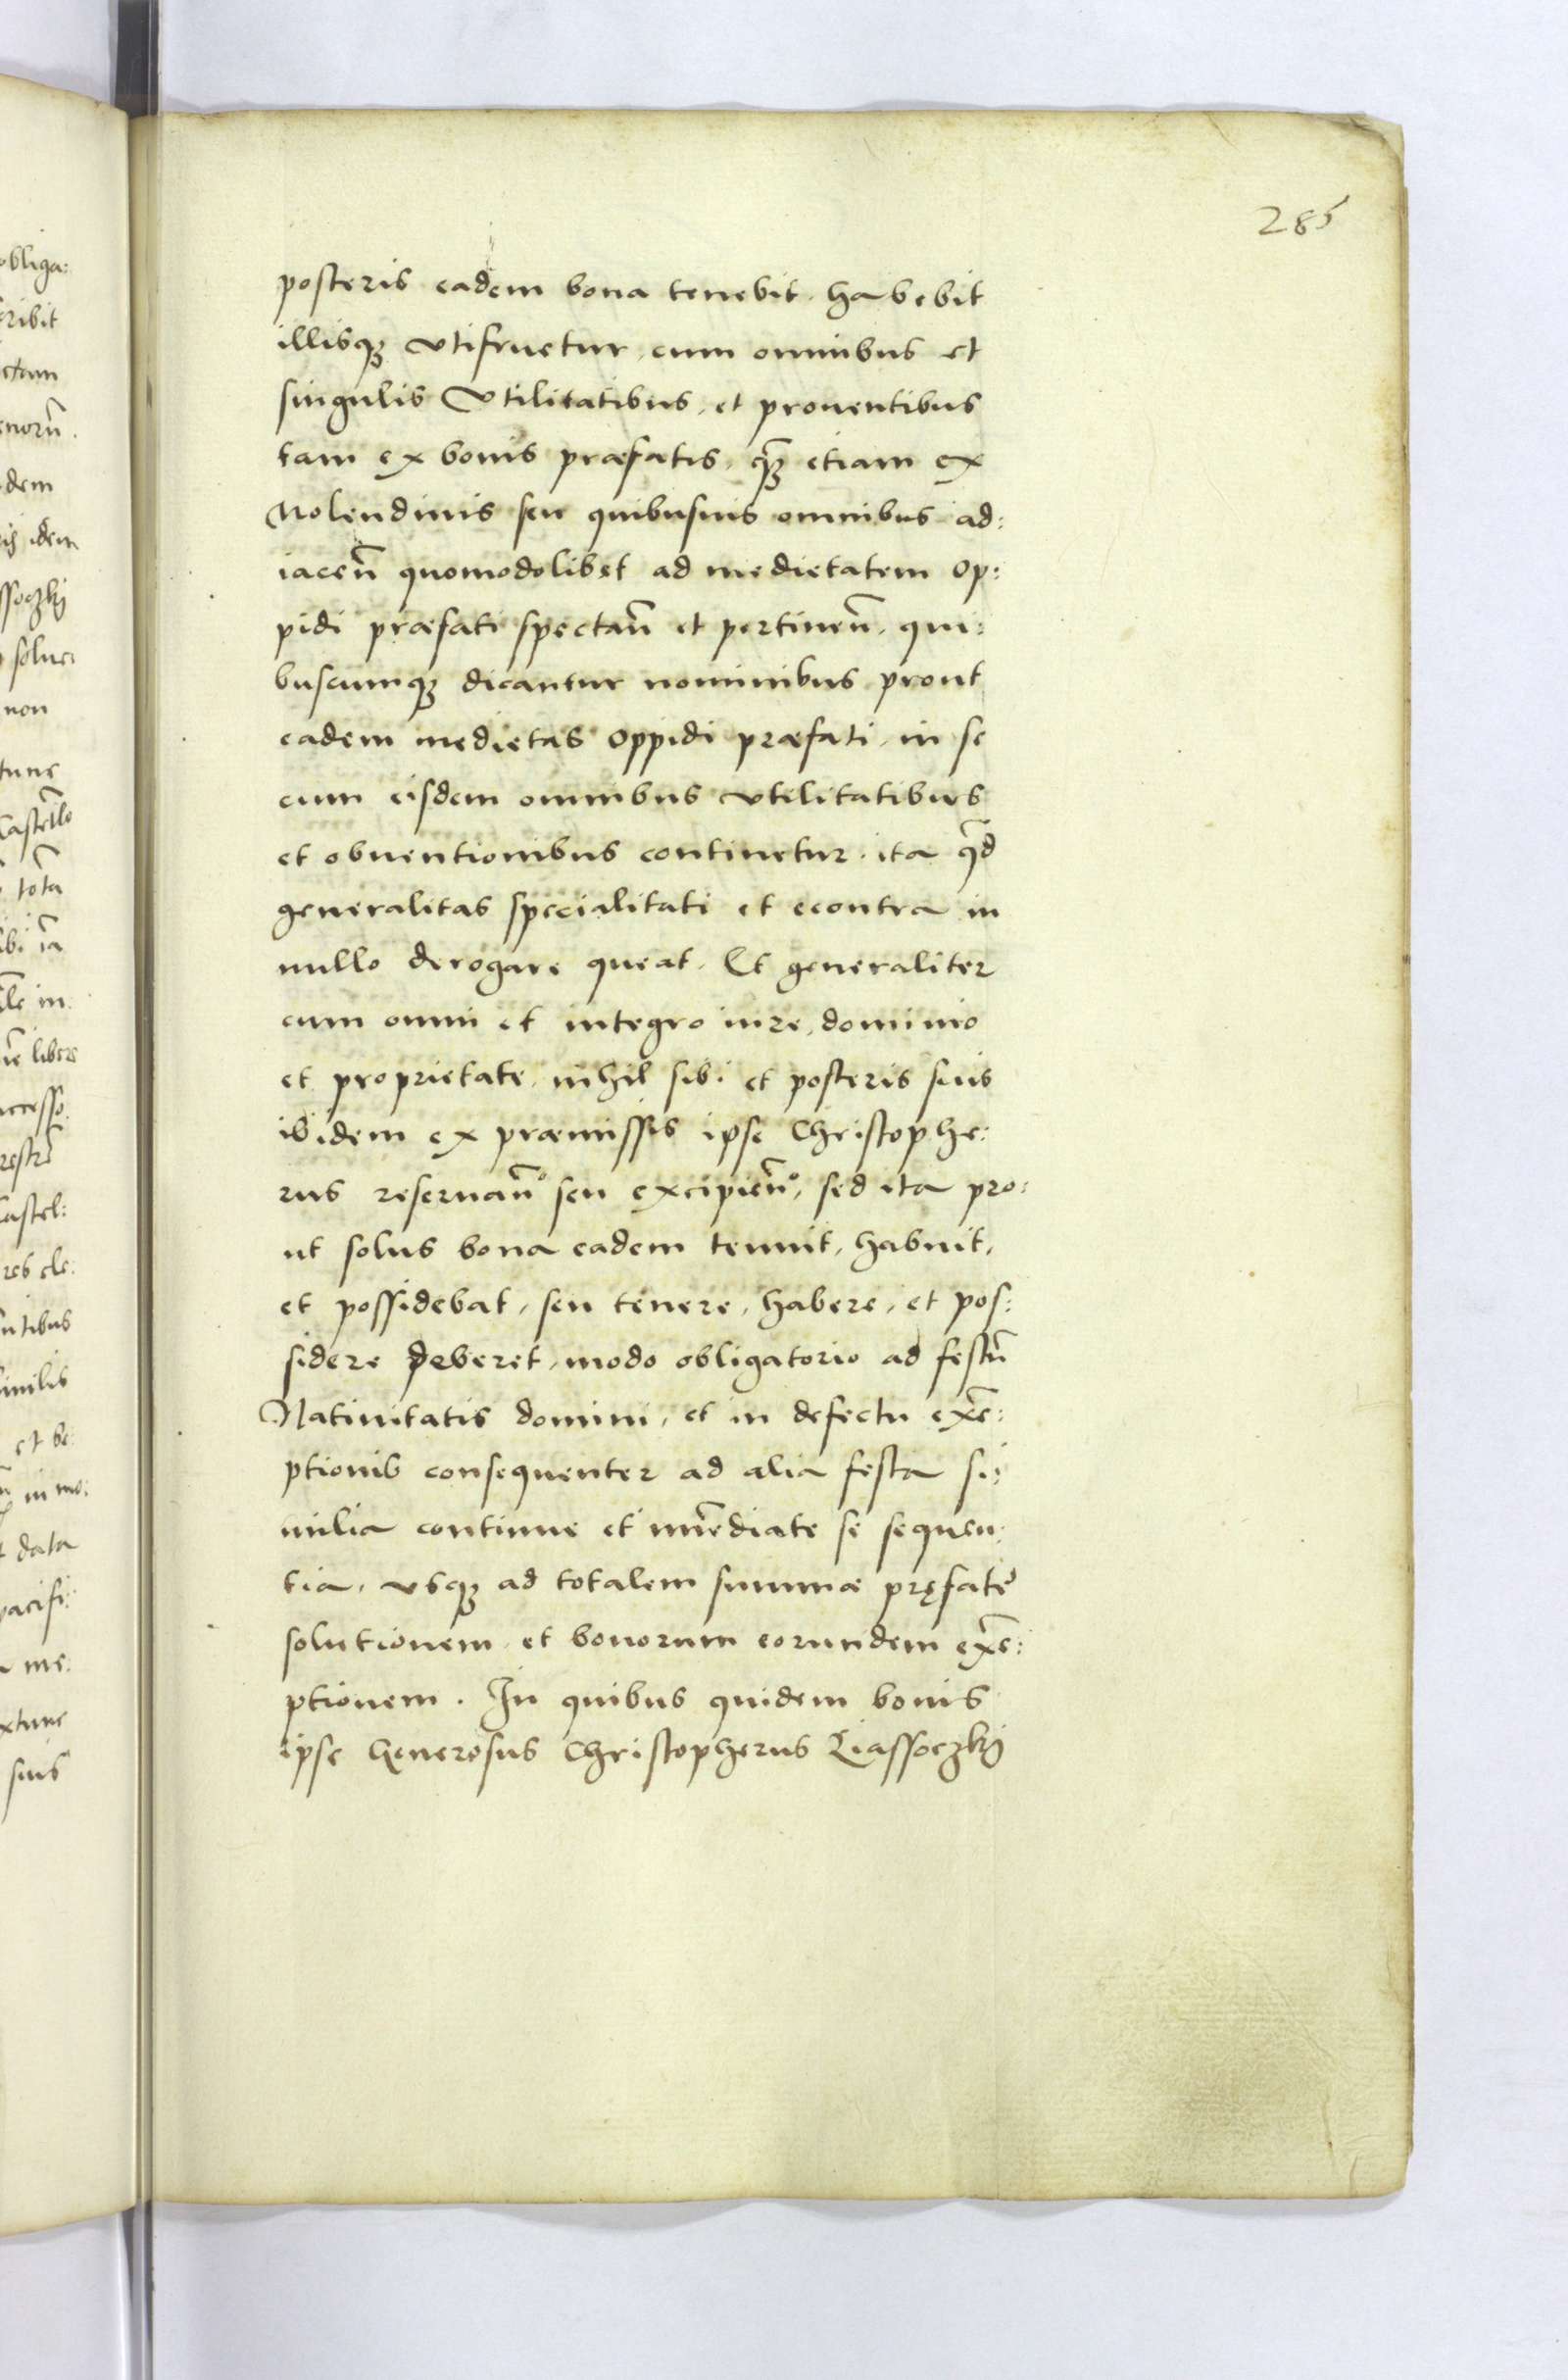 285
posteris eadem bona tenebit, habebit
illisq₃ vtifruetur, cum omnibus et
singulis Vtilitatibus, et prouentibus
tam ex bonis præfatis, q̃₃ etiam ex
Molendinis seu quibusuis omnibus ad:
iaceñ quomodolibet ad medietatem op:
pidi præfati spectañ et pertineñ, qui:
buscumq₃ dicantur nominibus prout
eadem medietas oppidi præfati, in se
cum eisdem omnibus vtilitatibus
et obuentionibus continetur, ita q̃d
generalitas specialitati et econtra in
nullo derogare queat. Et generaliter
cum omni et integro iure, dominio
et proprietate, nihil sibi et posteris suis
ibidem ex præmissis ipse Christophe:
rus reseruañ° seu excipieñ°, sed ita pro:
ut solus bona eadem tenuit, habuit,
et possidebat, seu tenere, habere, et pos:
sidere deberet, modo obligatorio ad festũ
Natiuitatis domini, et in defectu exẽ:
ptionis consequenter ad alia festa si:
milia continue et im̃ediate se sequen:
tia, vsq₃ ad totalem summæ pręfatę
solutionem et bonorum eorundem exẽ:
ptionem. In quibus quidem bonis
ipse Generosus Christopherus Liassoczkÿ